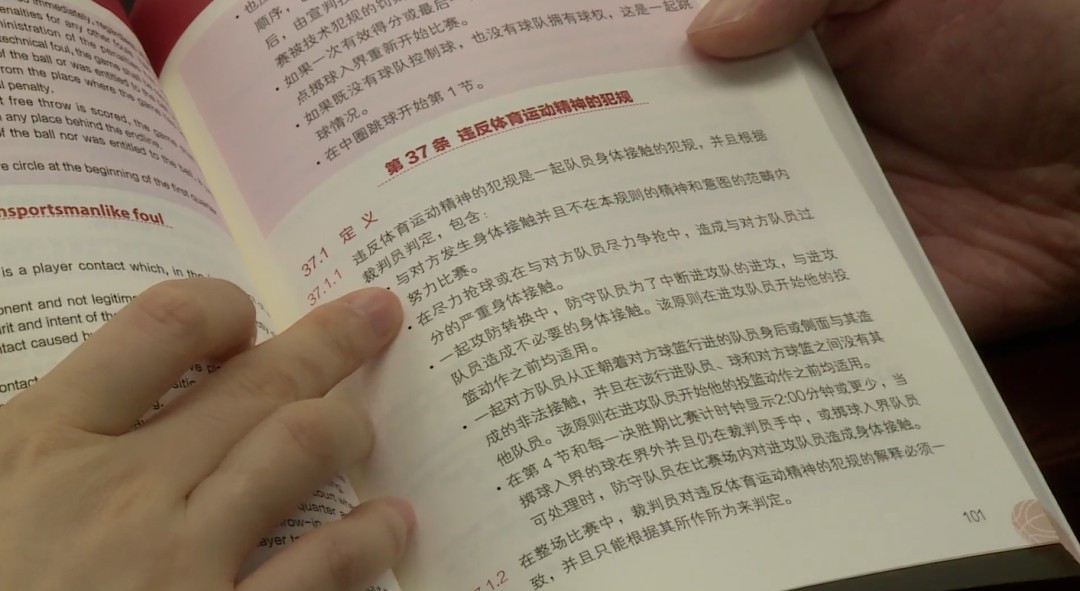 ed immediately, regardless
enalties for any other
ministration of the penalties
technical foul, the game shall
of the ball or was entitled to the
from the place where the game
l penalty.
t free throw is scored, the game
any place behind the endline.
of the ball nor was entitled to the
e circle at the beginning of the first quarter
nsportsmanlike foul
is a player contact which, in the
onent and not legitim
irit and intent of the
ntact caused b
ontact
quarter
row-in
ayer
顺序,
后,由宣判技
赛被技术犯规的罚
·如果一次有效得分或最后
点掷球入界重新开始比赛。
·如果既没有球队控制球,也没有球队拥有球权,这是一起跳
球情况。
·在中圈跳球开始第1节。
第 37 条 违反体育运动精神的犯规
37.1 定 义
37.1.1 违反体育运动精神的犯规是一起队员身体接触的犯规,并且根据
裁判员判定,包含:
·与对方发生身体接触并且不在本规则的精神和意图的范畴内
努力比赛。
·在尽力抢球或在与对方队员尽力争抢中,造成与对方队员过
分的严重身体接触。
·一起攻防转换中,防守队员为了中断进攻队的进攻,与进攻
队员造成不必要的身体接触。该原则在进攻队员开始他的投
篮动作之前均适用。
·一起对方队员从正朝着对方球篮行进的队员身后或侧面与其造
成的非法接触,并且在该行进队员、球和对方球篮之间没有其
他队员。该原则在进攻队员开始他的投篮动作之前均适用。
·在第 4 节和每一决胜期比赛计时钟显示2:00分钟或更少,当
掷球入界的球在界外并且仍在裁判员手中,或掷球入界队员
可处理时,防守队员在比赛场内对进攻队员造成身体接触。
7.1.2 在整场比赛中,裁判员对违反体育运动精神的犯规的解释必须一
致,并且只能根据其所作所为来判定。
101